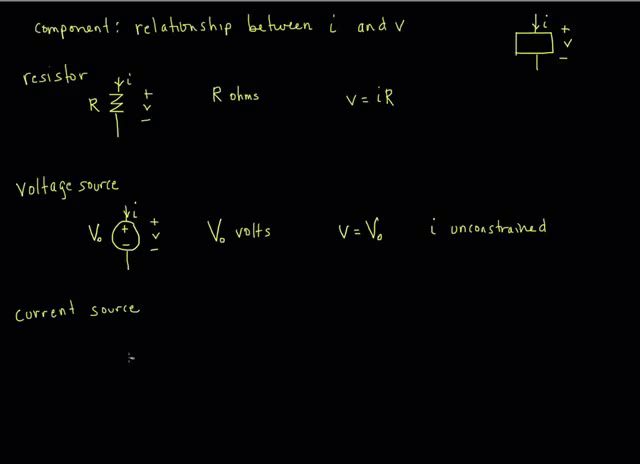 component: relationship between i and v
i + v −
resistor
R i + v − R ohms v = iR
voltage source
V₀ i + − + v − V₀ volts v = V₀ i unconstrained
current source